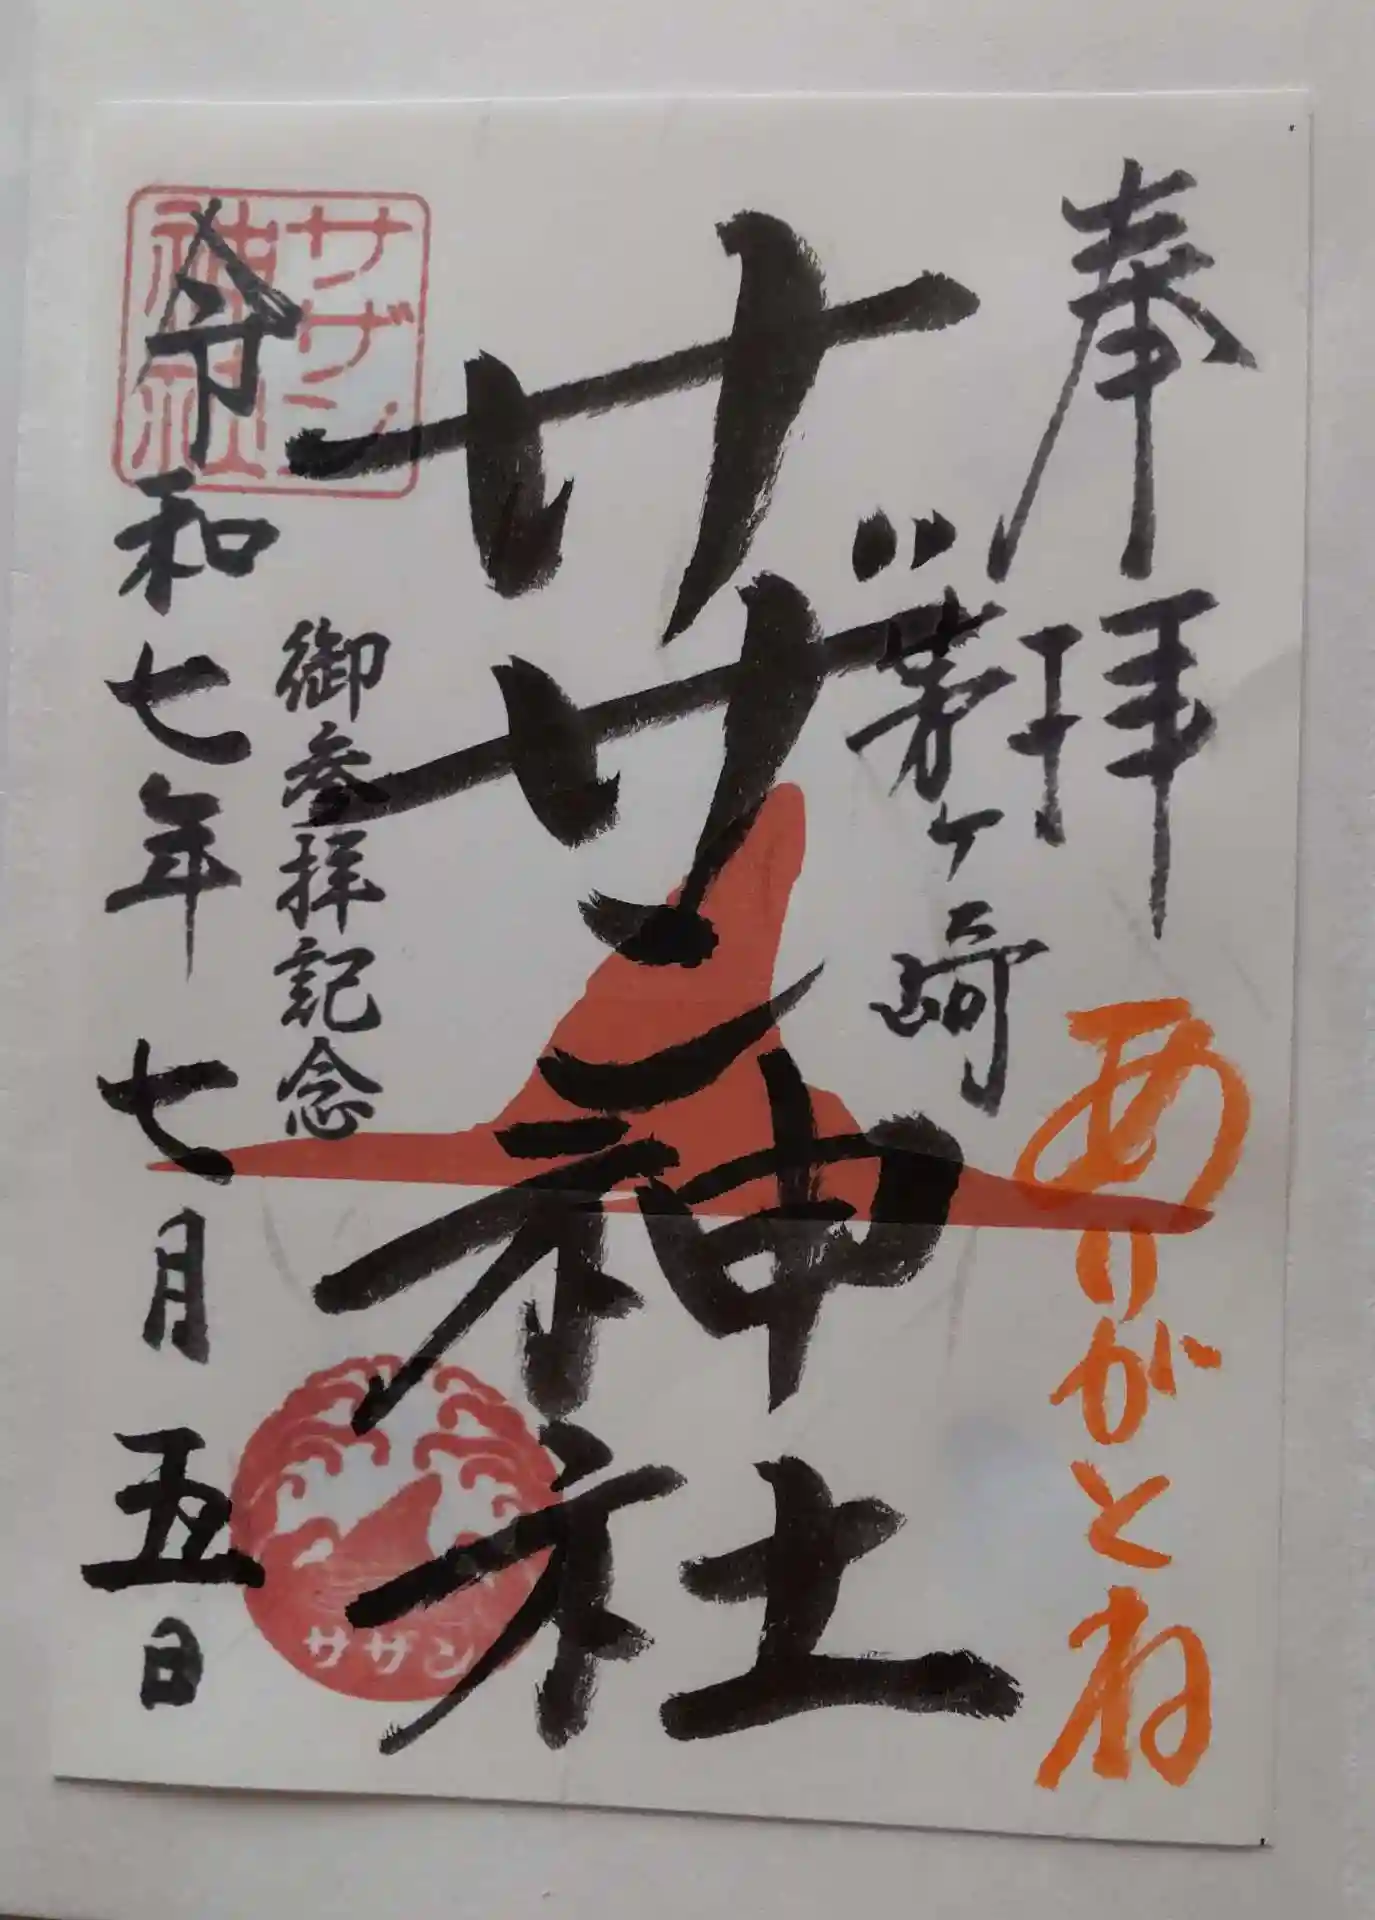 奉拝
ありがとね
茅ヶ崎
サザン神社
御参拝記念
令和七年 七月五日
サザン
神社
サザン